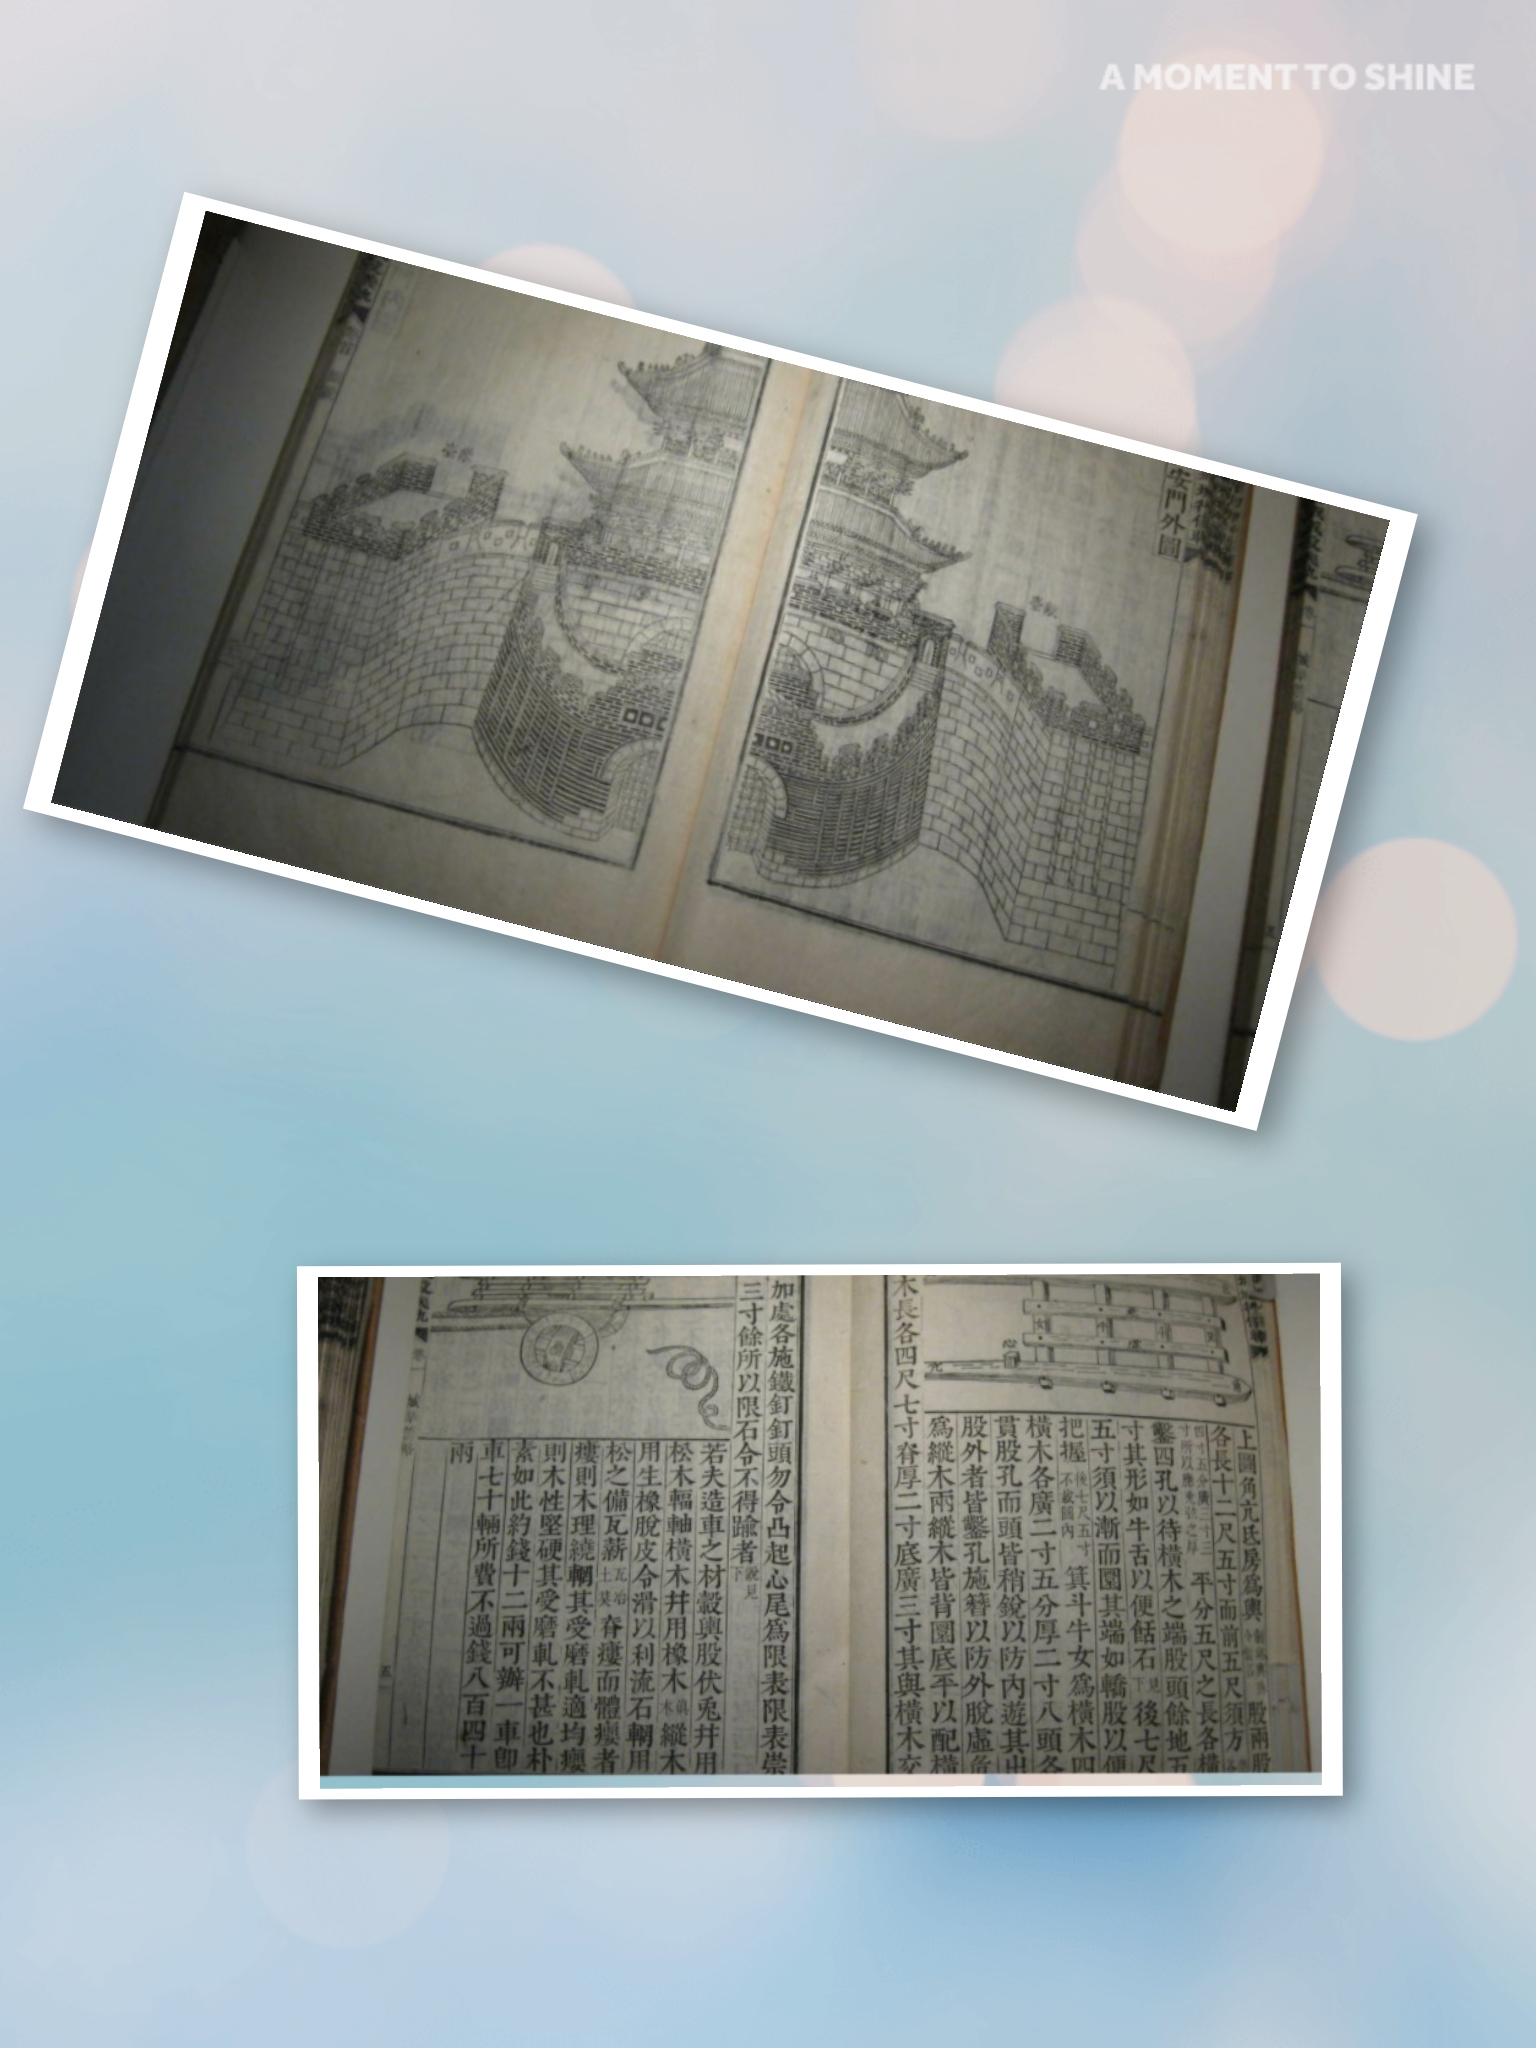 A MOMENT TO SHINE
安門外圖
上圓角亢氐房爲輿
股兩股
各長十二尺五寸而前五尺須方
平分五尺之長各橫
鑿四孔以待橫木之端股頭餘地五
寸其形如牛舌以便餂石
後七尺
五寸須以漸而圓其端如轎股以便
把握
後七尺五寸
不載圖內
箕斗牛女爲橫木四
橫木各廣二寸五分厚二寸八頭各
貫股孔而頭皆稍銳以防內遊其出
股外者皆鑿孔施簪以防外脫虛危
爲縱木兩縱木皆背圓底平以配橫
木長各四尺七寸脊厚二寸底廣三寸其與橫木交
加處各施鐵釘釘頭勿令凸起心尾爲限表限表崇
三寸餘所以限石令不得踰者
說見
下
若夫造車之材轂輿股伏兎幷用
松木輻軸橫木幷用橡木
縱木
用生橡脫皮令滑以利流石輞用
松之備瓦薪
脊癭而體癭者
癭則木理繞輞其受磨軋適均癭
則木性堅硬其受磨軋不甚也朴
素如此約錢十二兩可辦一車卽
車七十輛所費不過錢八百四十
兩
五